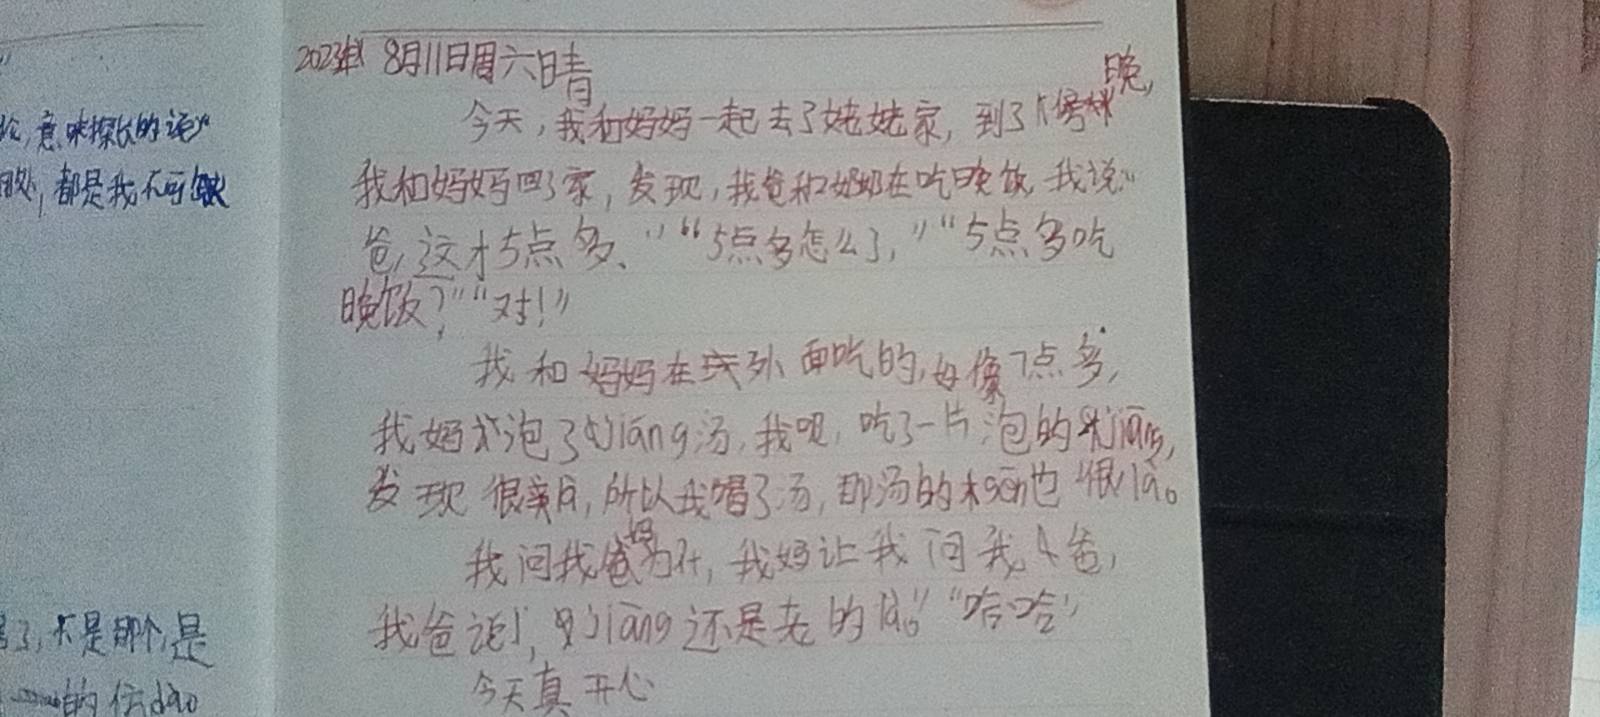 论,意味探长的话"
都是我不可缺
了,不是那个,是
的味dào
2023年 8月11日周六晴
今天,我和妈妈一起去了姥姥家,到了晚,
我和妈妈回了家,发现,我爸和奶奶在吃晚饭 我说"
爸,这才5点多、""5点多怎么了,""5点多吃
晚饭?""对!"
我和妈妈在外面吃的,好像7点多,
我妈泡了jiāng汤,我呢,吃了一片泡的jiāng,
发现很辣,所以我喝了汤,那汤的味也很là。
我问我妈为什,我妈让我问我爸,
我爸说,"jiāng还是老的là。""哈哈"
今天真开心